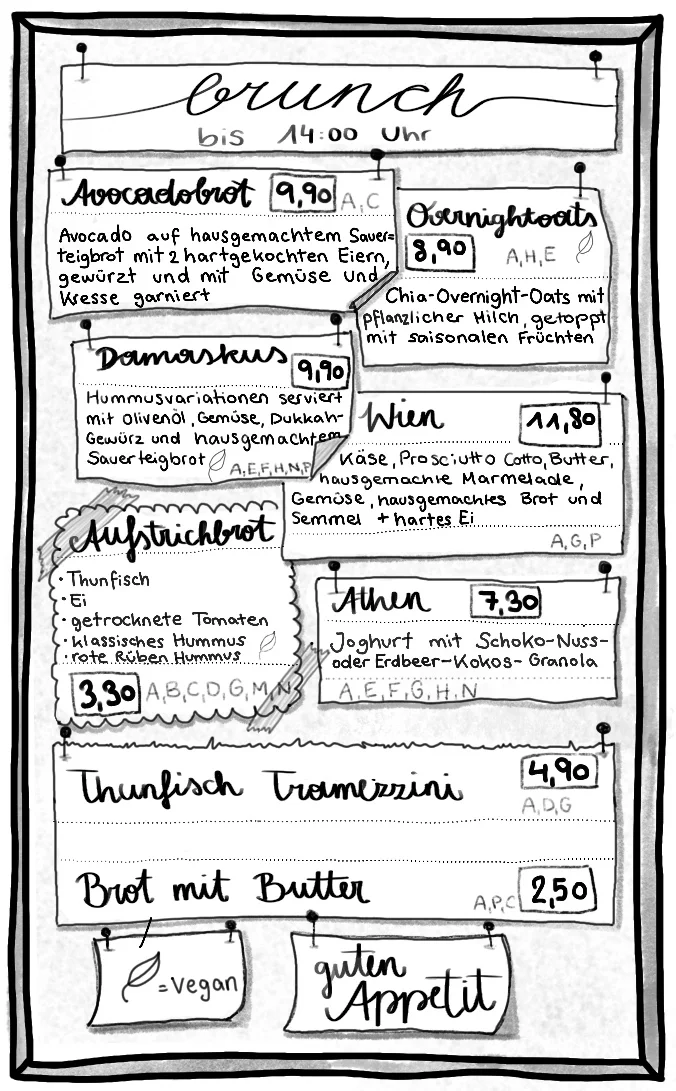 brunch
bis 14:00 Uhr
Avocadobrot 9,90 A,C
Avocado auf hausgemachtem Sauer=
teigbrot mit 2 hartgekochten Eiern,
gewürzt und mit Gemüse und
Kresse garniert
Overnightoats
8,90 A,H,E
Chia-Overnight-Oats mit
pflanzlicher Milch, getoppt
mit saisonalen Früchten
Damaskus
9,90
Hummusvariationen serviert
mit Olivenöl, Gemüse, Dukkah-
Gewürz und hausgemachtem
Sauerteigbrot A,E,F,H,N,P
Wien 11,80
Käse, Prosciutto Cotto, Butter,
hausgemachte Marmelade,
Gemüse, hausgemachtes Brot und
Semmel + hartes Ei
A,G,P
Aufstrichbrot
· Thunfisch
· Ei
· getrocknete Tomaten
· klassisches Hummus
· rote Rüben Hummus
3,30 A,B,C,D,G,M,N
Athen 7,30
Joghurt mit Schoko-Nuss-
oder Erdbeer-Kokos-Granola
A,E,F,G,H,N
Thunfisch Tramezzini 4,90
A,D,G
Brot mit Butter A,P,C 2,50
=vegan
guten
Appetit